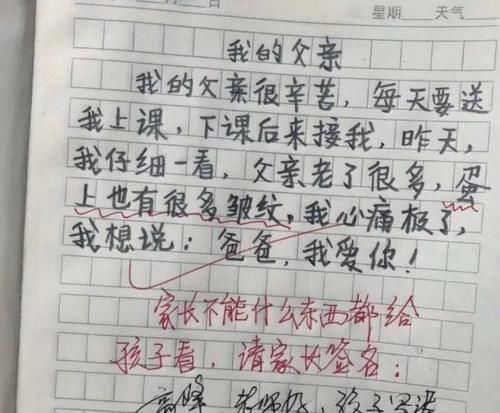 星期 天气
我的父亲
我的父亲很辛苦，每天要送
我上课，下课后来接我，昨天，
我仔细一看，父亲老了很多，蛋
上也有很多皱纹，我心痛极了，
我想说：爸爸，我爱你！
家长不能什么东西都给
孩子看，请家长签名：
老师好，孩子